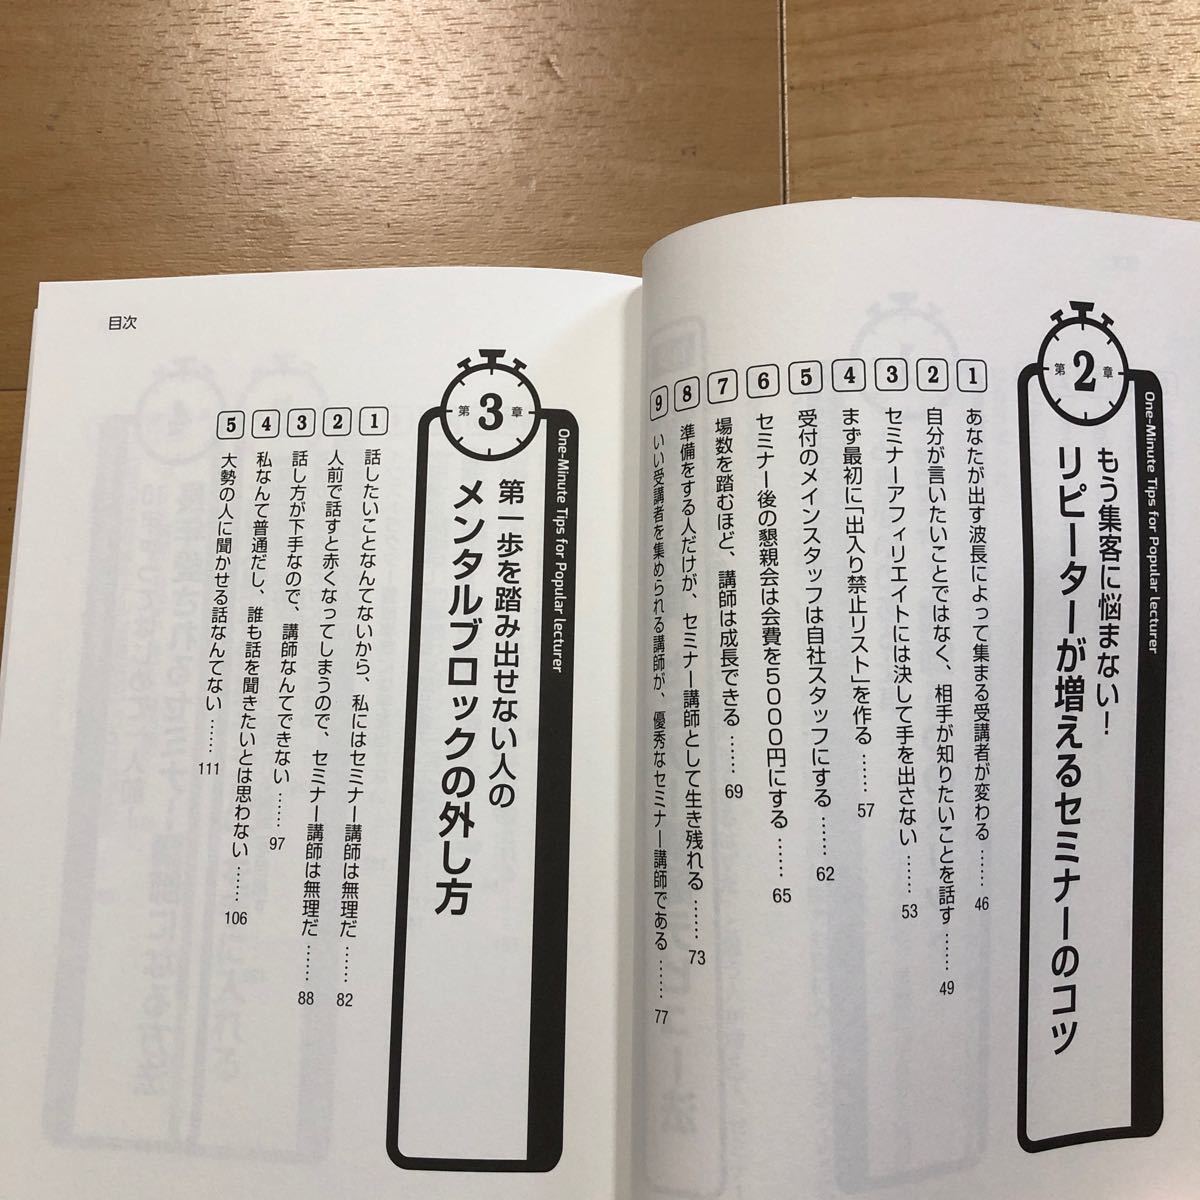 One-Minute Tips for Popular lecturer
第2章
もう集客に悩まない！
リピーターが増えるセミナーのコツ
1 あなたが出す波長によって集まる受講者が変わる …… 46
2 自分が言いたいことではなく、相手が知りたいことを話す …… 49
3 セミナーアフィリエイトには決して手を出さない …… 53
4 まず最初に「出入り禁止リスト」を作る …… 57
5 受付のメインスタッフは自社スタッフにする …… 62
6 セミナー後の懇親会は会費を5000円にする …… 65
7 場数を踏むほど、講師は成長できる …… 69
8 準備をする人だけが、セミナー講師として生き残れる …… 73
9 いい受講者を集められる講師が、優秀なセミナー講師である …… 77
One-Minute Tips for Popular lecturer
第3章
第一歩を踏み出せない人の
メンタルブロックの外し方
1 話したいことなんてないから、私にはセミナー講師は無理だ …… 82
2 人前で話すと赤くなってしまうので、セミナー講師は無理だ …… 88
3 話し方が下手なので、講師なんてできない …… 97
4 私なんて普通だし、誰も話を聞きたいとは思わない …… 106
5 大勢の人に聞かせる話なんてない …… 111
目次